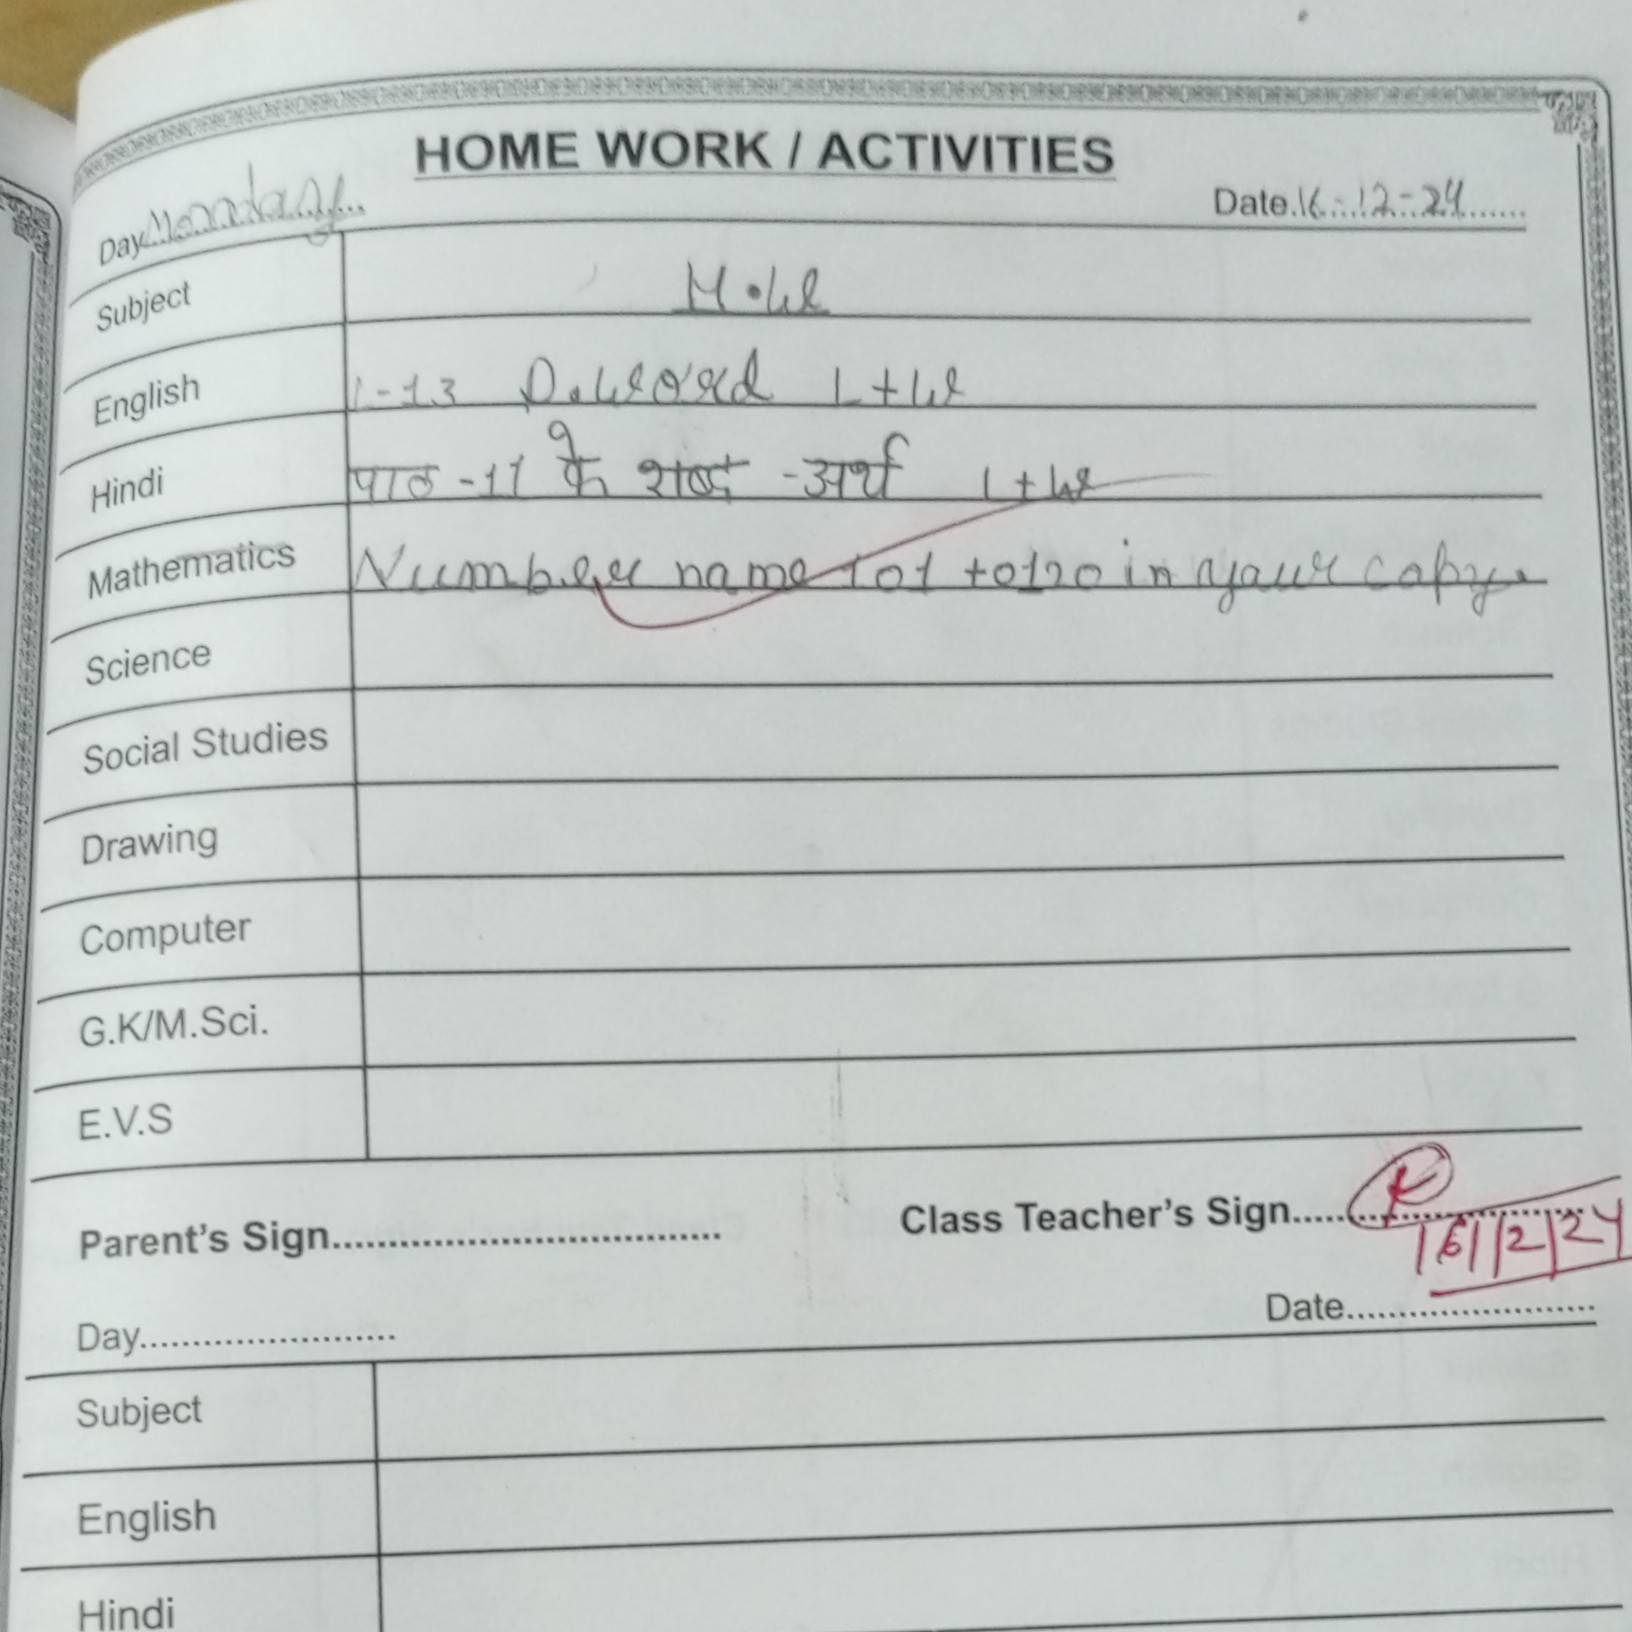 HOME WORK / ACTIVITIES
Day Monday Date. 16-12-24
Subject H.W
English L-13 D.Word L+W
Hindi पाठ -11 के शब्द -अर्थ L+W
Mathematics Number name 101 to 120 in your copy.
Science
Social Studies
Drawing
Computer
G.K/M.Sci.
E.V.S
Parent's Sign Class Teacher's Sign
16/12/24
Day Date
Subject
English
Hindi